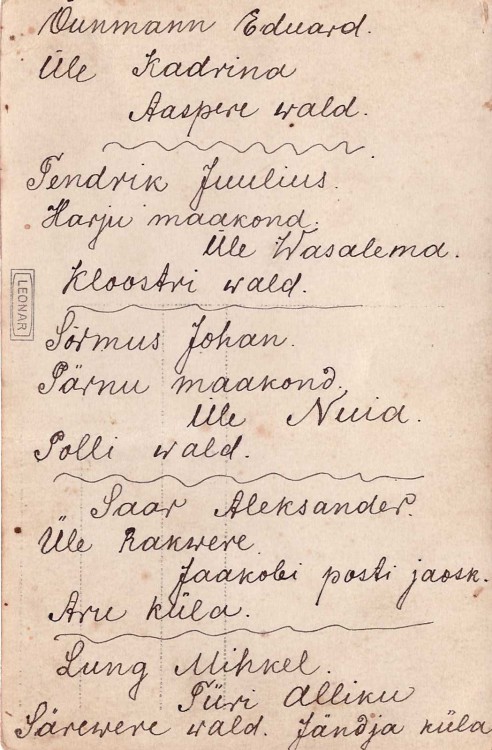 Õunmann Eduard.
Üle Kadrina
Aaspere wald.
Tendrik Juulius.
Harju maakond.
Üle Wasalema.
Kloostri wald.
LEONAR
Sõrmus Johan.
Pärnu maakond.
Üle Nuia.
Polli wald.
Saar Aleksander.
Üle Rakwere
Jaakobi posti jaosk.
Aru küla.
Lung Mihkel.
Türi Alliku
Särewere wald. Jändja küla